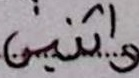 واثنين